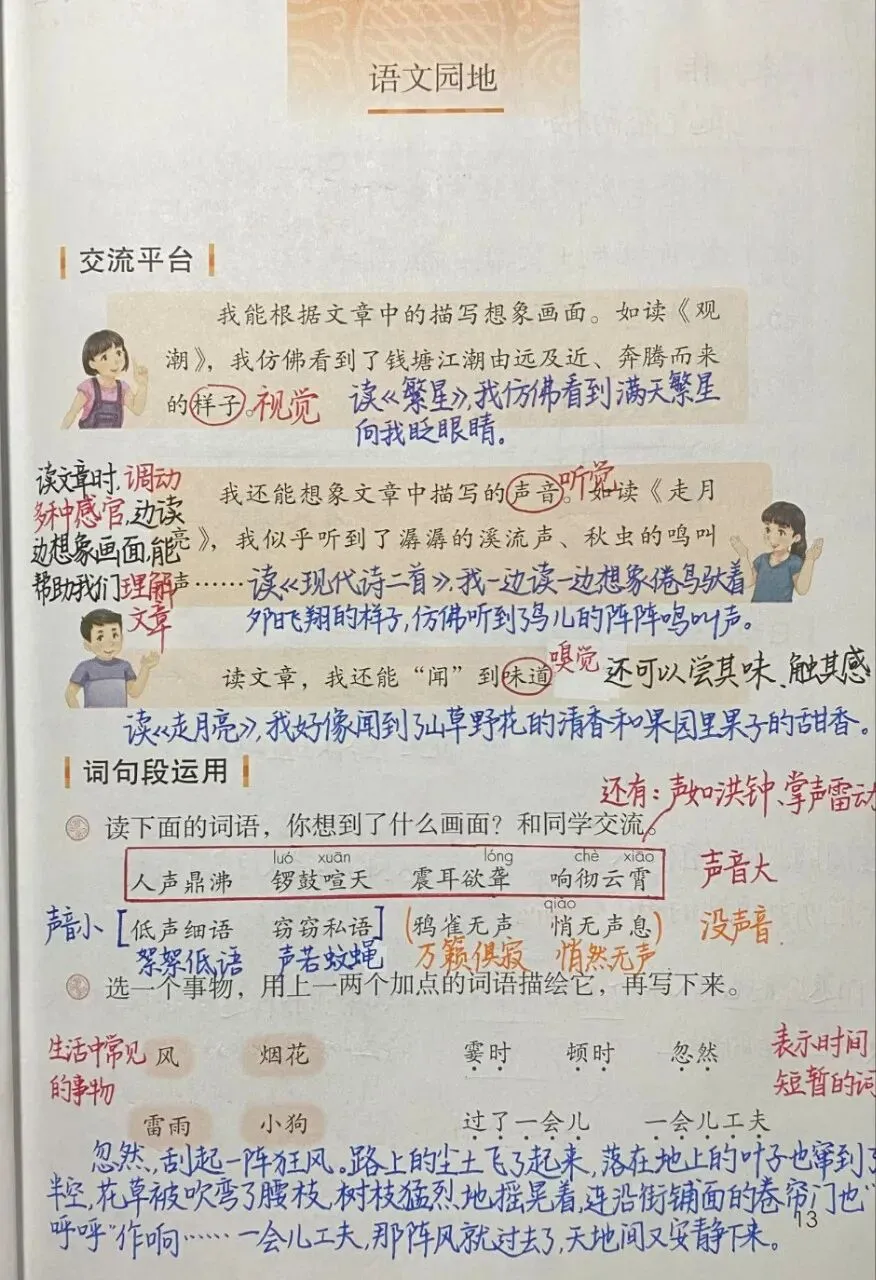 语文园地
交流平台
我能根据文章中的描写想象画面。如读《观
潮》，我仿佛看到了钱塘江潮由远及近、奔腾而来
的样子。视觉
读《繁星》,我仿佛看到满天繁星
向我眨眼睛。
读文章时,调动
多种感官,边读
边想象画面,能
帮助我们理解
文章
我还能想象文章中描写的声音。听觉如读《走月
亮》，我似乎听到了潺潺的溪流声、秋虫的鸣叫
声……读《现代诗二首》,我一边读一边想象倦鸟驮着
夕阳飞翔的样子,仿佛听到了鸟儿的阵阵鸣叫声。
读文章，我还能“闻”到味道 嗅觉 还可以尝其味、触其感
读《走月亮》,我好像闻到了山草野花的清香和果园里果子的甜香。
词句段运用
还有：声如洪钟、掌声雷动
读下面的词语，你想到了什么画面？和同学交流。
luó xuān lóng chè xiāo
人声鼎沸 锣鼓喧天 震耳欲聋 响彻云霄 声音大
qiǎo
声音小 [低声细语 窃窃私语] (鸦雀无声 悄无声息) 没声音
絮絮低语 声若蚊蝇 万籁俱寂 悄然无声
选一个事物，用上一两个加点的词语描绘它，再写下来。
生活中常见
的事物
风 烟花 霎时 顿时 忽然
表示时间
短暂的词
雷雨 小狗 过了一会儿 一会儿工夫
忽然,刮起一阵狂风。路上的尘土飞了起来,落在地上的叶子也窜到了
半空,花草被吹弯了腰枝,树枝猛烈地摇晃着,连沿街铺面的卷帘门也“
呼呼”作响……一会儿工夫,那阵风就过去了,天地间又安静下来。
13